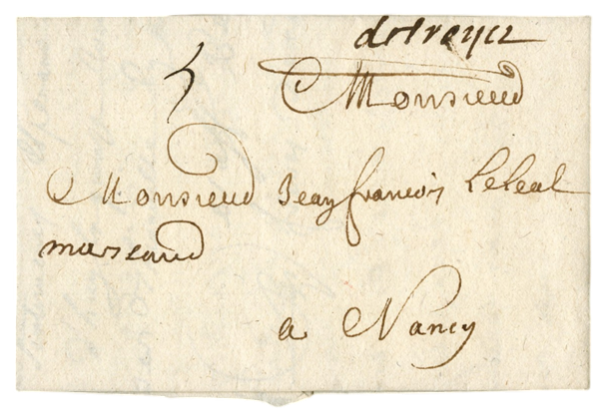 detroyes
Monsieur
Monsieur Jean francois LeLeal
marcand
a Nancy